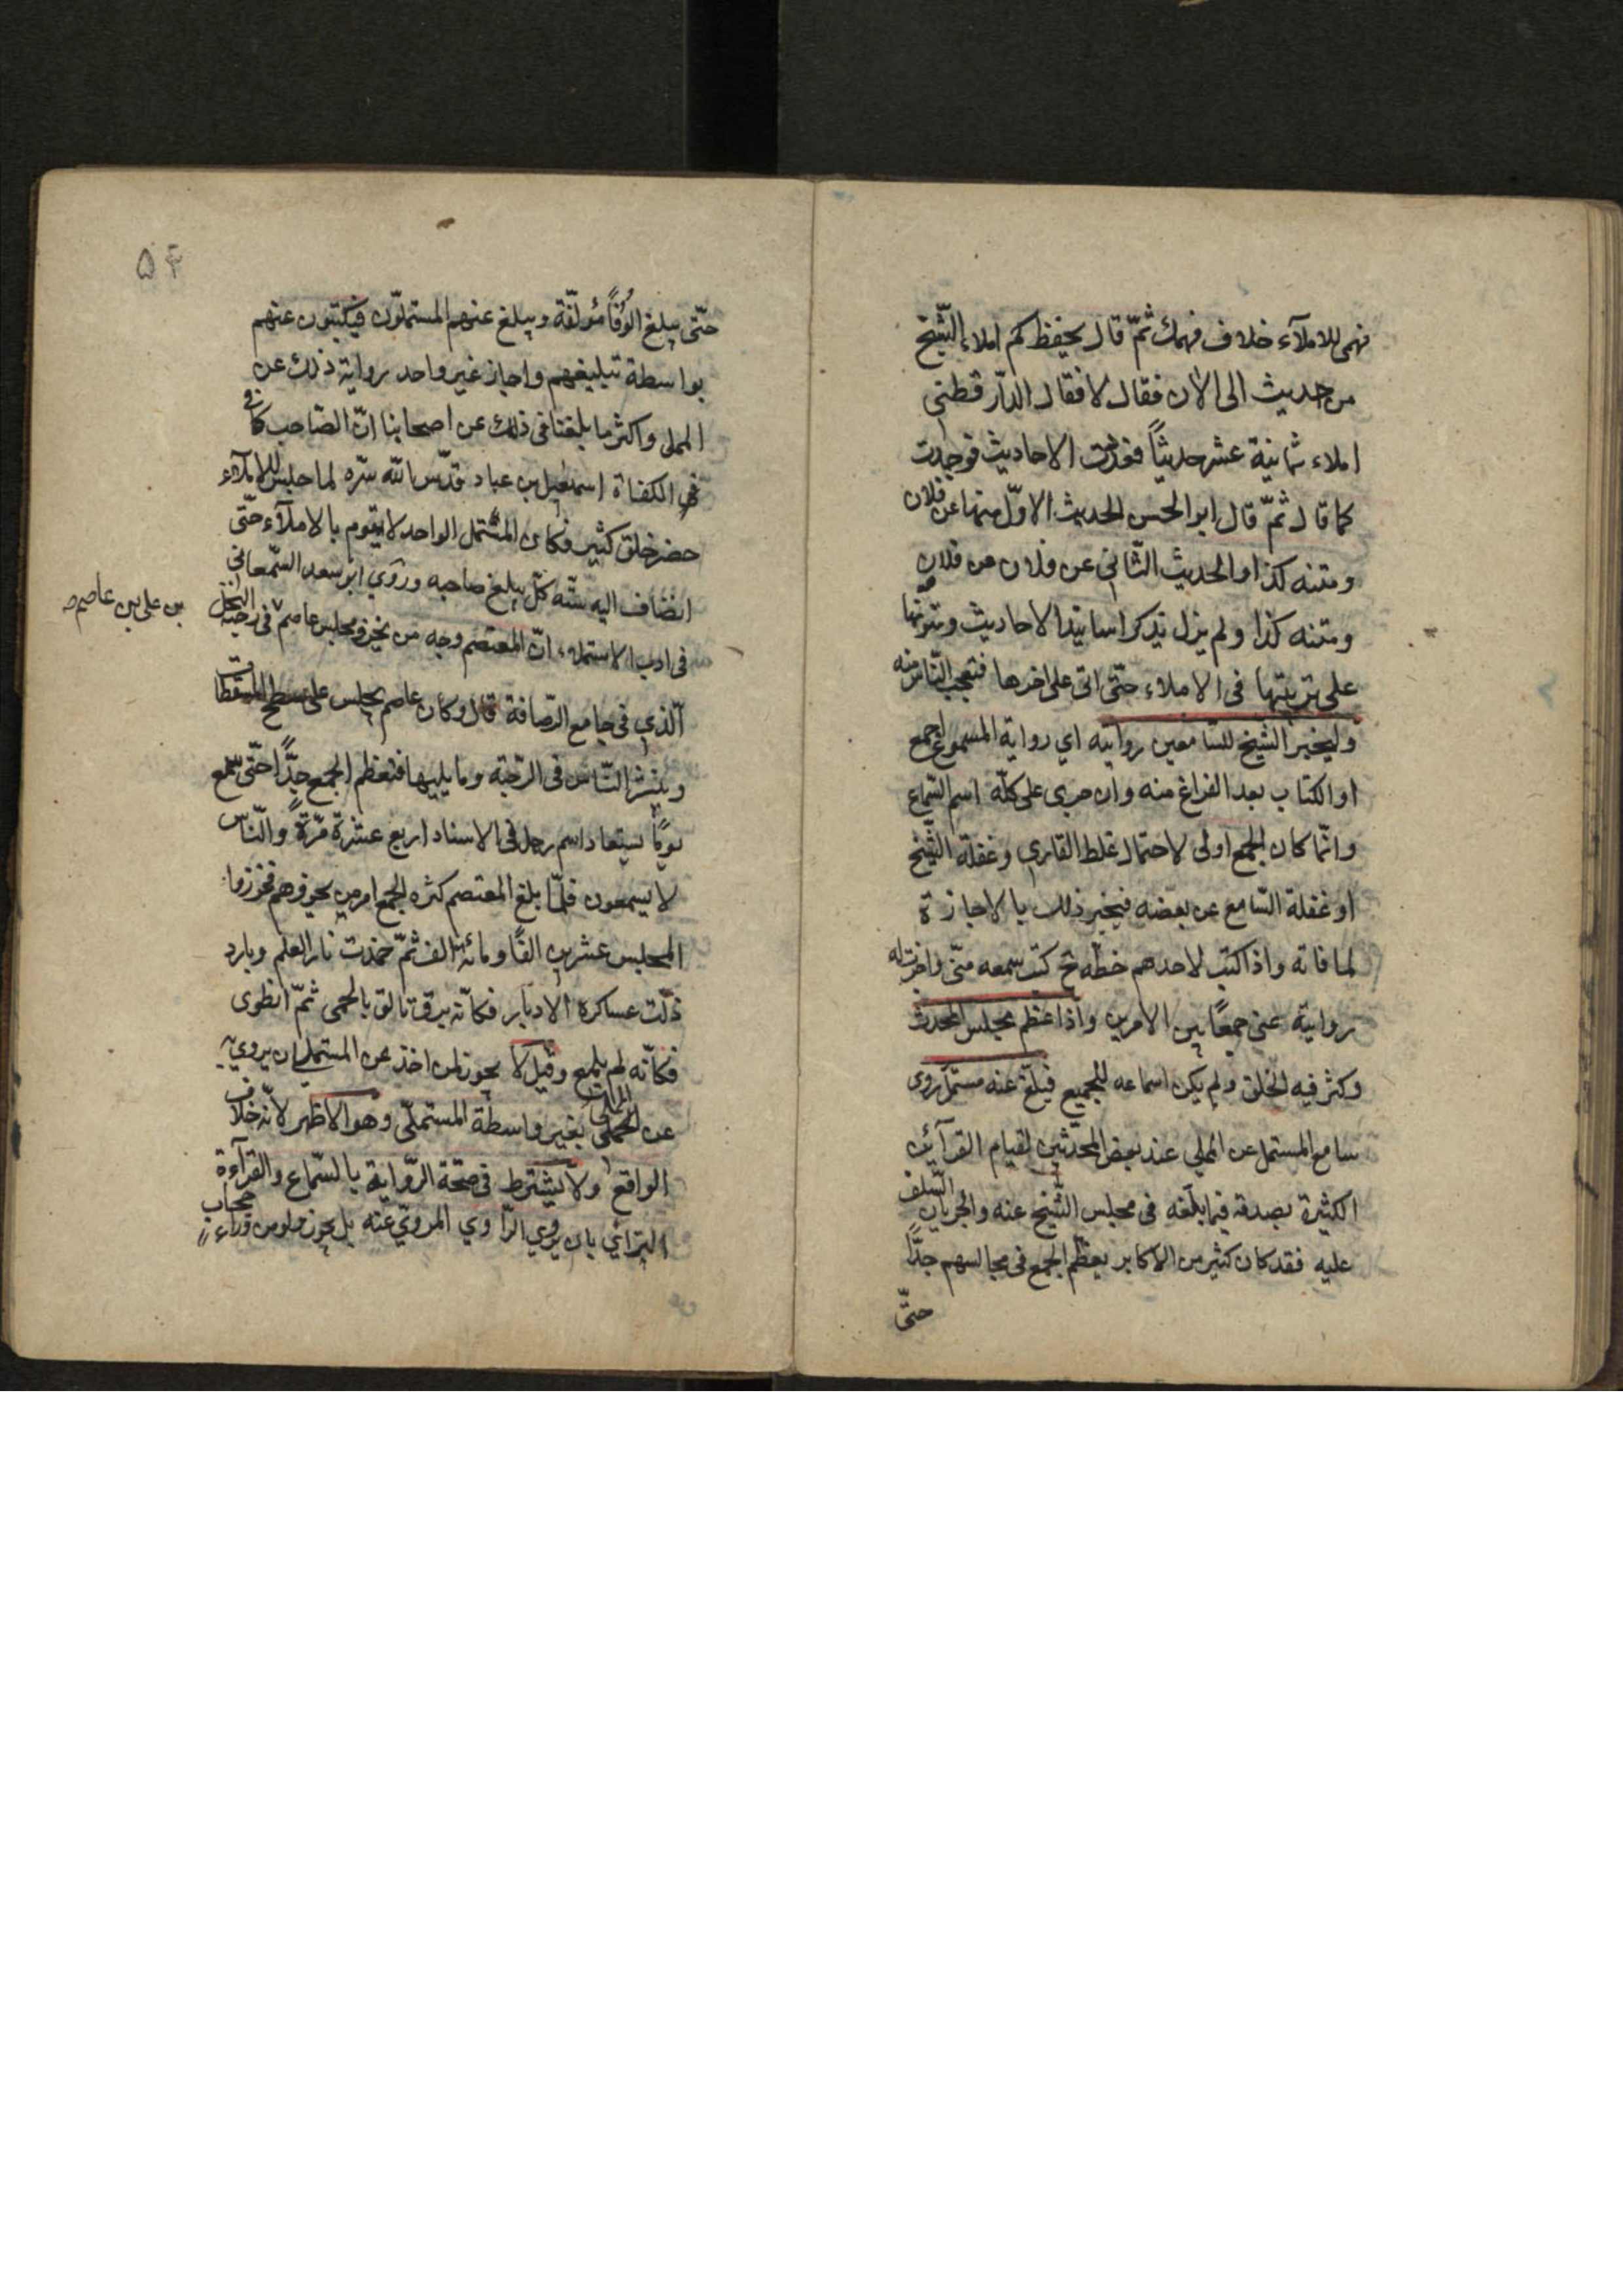 فهمى للاملآء خلاف فهمك ثمّ قال يحفظ كم املاء الشّيخ
من حديث الى الآن فقال لا فقال الدّار قطنى
املاء ثمانية عشر حديثاً فعدّت الاحاديث فوجدت
كما قال ثمّ قال ابو الحسن الحديث الاوّل منها عن فلان
ومتنه كذا والحديث الثّانى عن فلان عن فلان
ومتنه كذا ولم يزل يذكر اسانيد الاحاديث ومتونها
على ترتيبها فى الاملاء حتّى اتى على اخرها فتعجّب النّاس منه
وليخبر الشّيخ للسّامعين روايته اي رواية المسموع اجمع
او الكتاب بعد الفراغ منه وان جرى على كلّه اسم السّماع
وانّما كان الجمع اولى لاحتمال غلط القاري وغفلة الشّيخ
او غفلة السّامع عن بعضه فيجبر ذلك بالاجازة
لما فاته واذا كتب لاحدهم خطّه ح كتب سمعه منّى واجزت له
روايته عنى جمعًا بين الامرين واذا عظم مجلس المحدث
وكثر فيه الخلق ولم يكن اسماعه للجميع فبلّغ عنه مستمل روى
سامع المستملى عن المملي عند بعض المحدّثين لقيام القرآئن
الكثيرة بصدقه فيما بلّغه فى مجلس الشّيخ عنه والجريان السّلف
عليه فقد كان كثير من الاكابر يعظّم الجمع فى مجالسهم جدًّا
حتّى
۵۴
حتّى يبلغ الوُفًا مُؤلّفة ويبلغ عنهم المستملّون فيكتبون عنهم
بواسطة تبليغهم واجاز غير واحد رواية ذلك عن
المملى واكثر ما بلغنا فى ذلك عن اصحابنا انّ الصّاحب كافى
الكفاة اسمعيل بن عباد قدّس الله سرّه لما جلس للاملآء
حضر خلق كثير فكان المستمل الواحد لا يقوم بالاملآء حتّى
انضاف اليه ستّه كلّ يبلغ صاحبه وروي ابو سعد السّمعانى
فى ادب الاستملاء انّ المعتصم وجه من يحزر مجلس عاصم فى رحبة النخل
بن على بن عاصم ص
الّذي فى جامع الرّصافة قال وكان عاصم يجلس على سطح المسقطات
وينشر النّاس فى الرّحبة وما يليها فتعظم الجمع جدًّا حتّى سمع
يومًا يستعاد اسم رجل فى الاسناد اربع عشرة مرّةً والنّاس
لا يسمعون فلمّا بلغ المعتصم كثره الجمع امر من يحزرهم فحزروا
المجلس عشرين الفًا ومائة الف ثمّ خمدت نار العلم وبارد
ذلّت عساكره الادبار فكانّه برق تالق بالحمى ثمّ انطوى
فكانّه لم يلمع وقيل لا يجوز لمن اخذ عن المستملى ان يرويه
عن المملى بغير واسطة المستملّى وهو الاظهر لانّه خلاف
الواقع ولا يشترط فى صحّة الرّواية بالسّماع والقرآءة
الترائي بان يروي الرّاوي المرويّ عنه بل يجوز ولو من ورآء حجاب